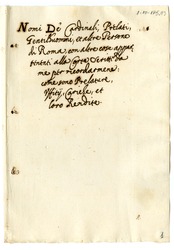 Nomi De Cardinali, Prelati,
Gentilhuomini, et altre Persone
di Roma, con altre cose appar
tinenti alla Corte scritti da
me per ricordarmene:
come sono Prelature,
Uffitij, Cariche, et
loro Rendite